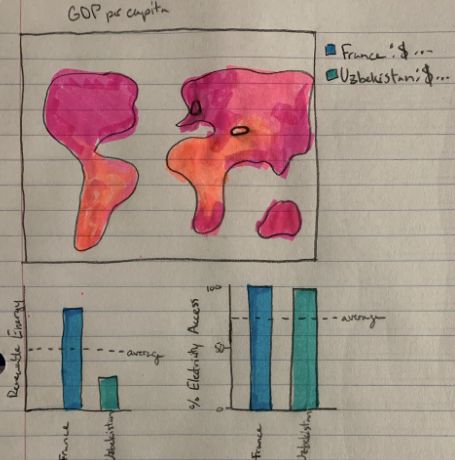 GDP per capita
France: $ ...
Uzbekistan: $ ...
Renewable Energy
average
France
Uzbekistan
% Electricity Access
100
50
0
average
France
Uzbekistan